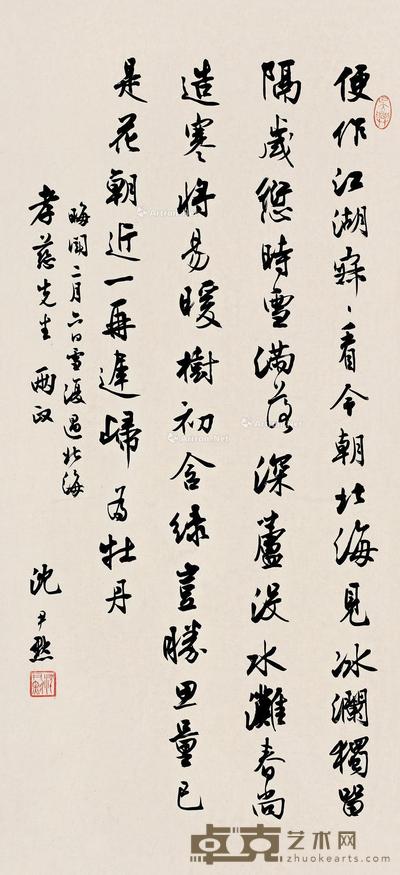 便作江湖寐〻看今朝北海見冰瀾獨留
隔歲愆時雪滿落深蘆沒水灘春尚
造寒將易暖樹初含綠豈勝思量已
是花朝近一再遲歸為牡丹
晦聞二月六日雪後過北海
孝慈先生兩政
沈尹默
Artron.Net
卓克艺术网
zhuokearts.com